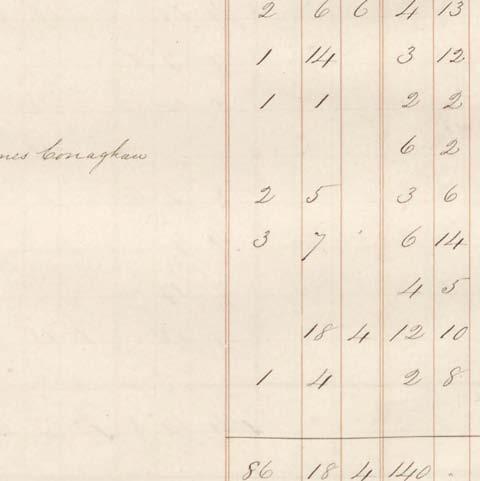 2 6 6 4 13
1 14 3 12
1 1 2 2
nes Conaghan 6 2
2 5 3 6
3 7 6 14
4 5
18 4 12 10
1 4 2 8
86 18 4 140